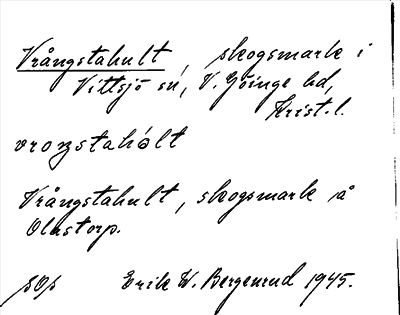 Vrångstahult, skogsmark i
Vittsjö sn, V. Göinge hd,
Krist. l.
vroŋstahólt
Vrångstahult, skogsmark å
Olastorp.
Erik W. Bergenrud 1945.